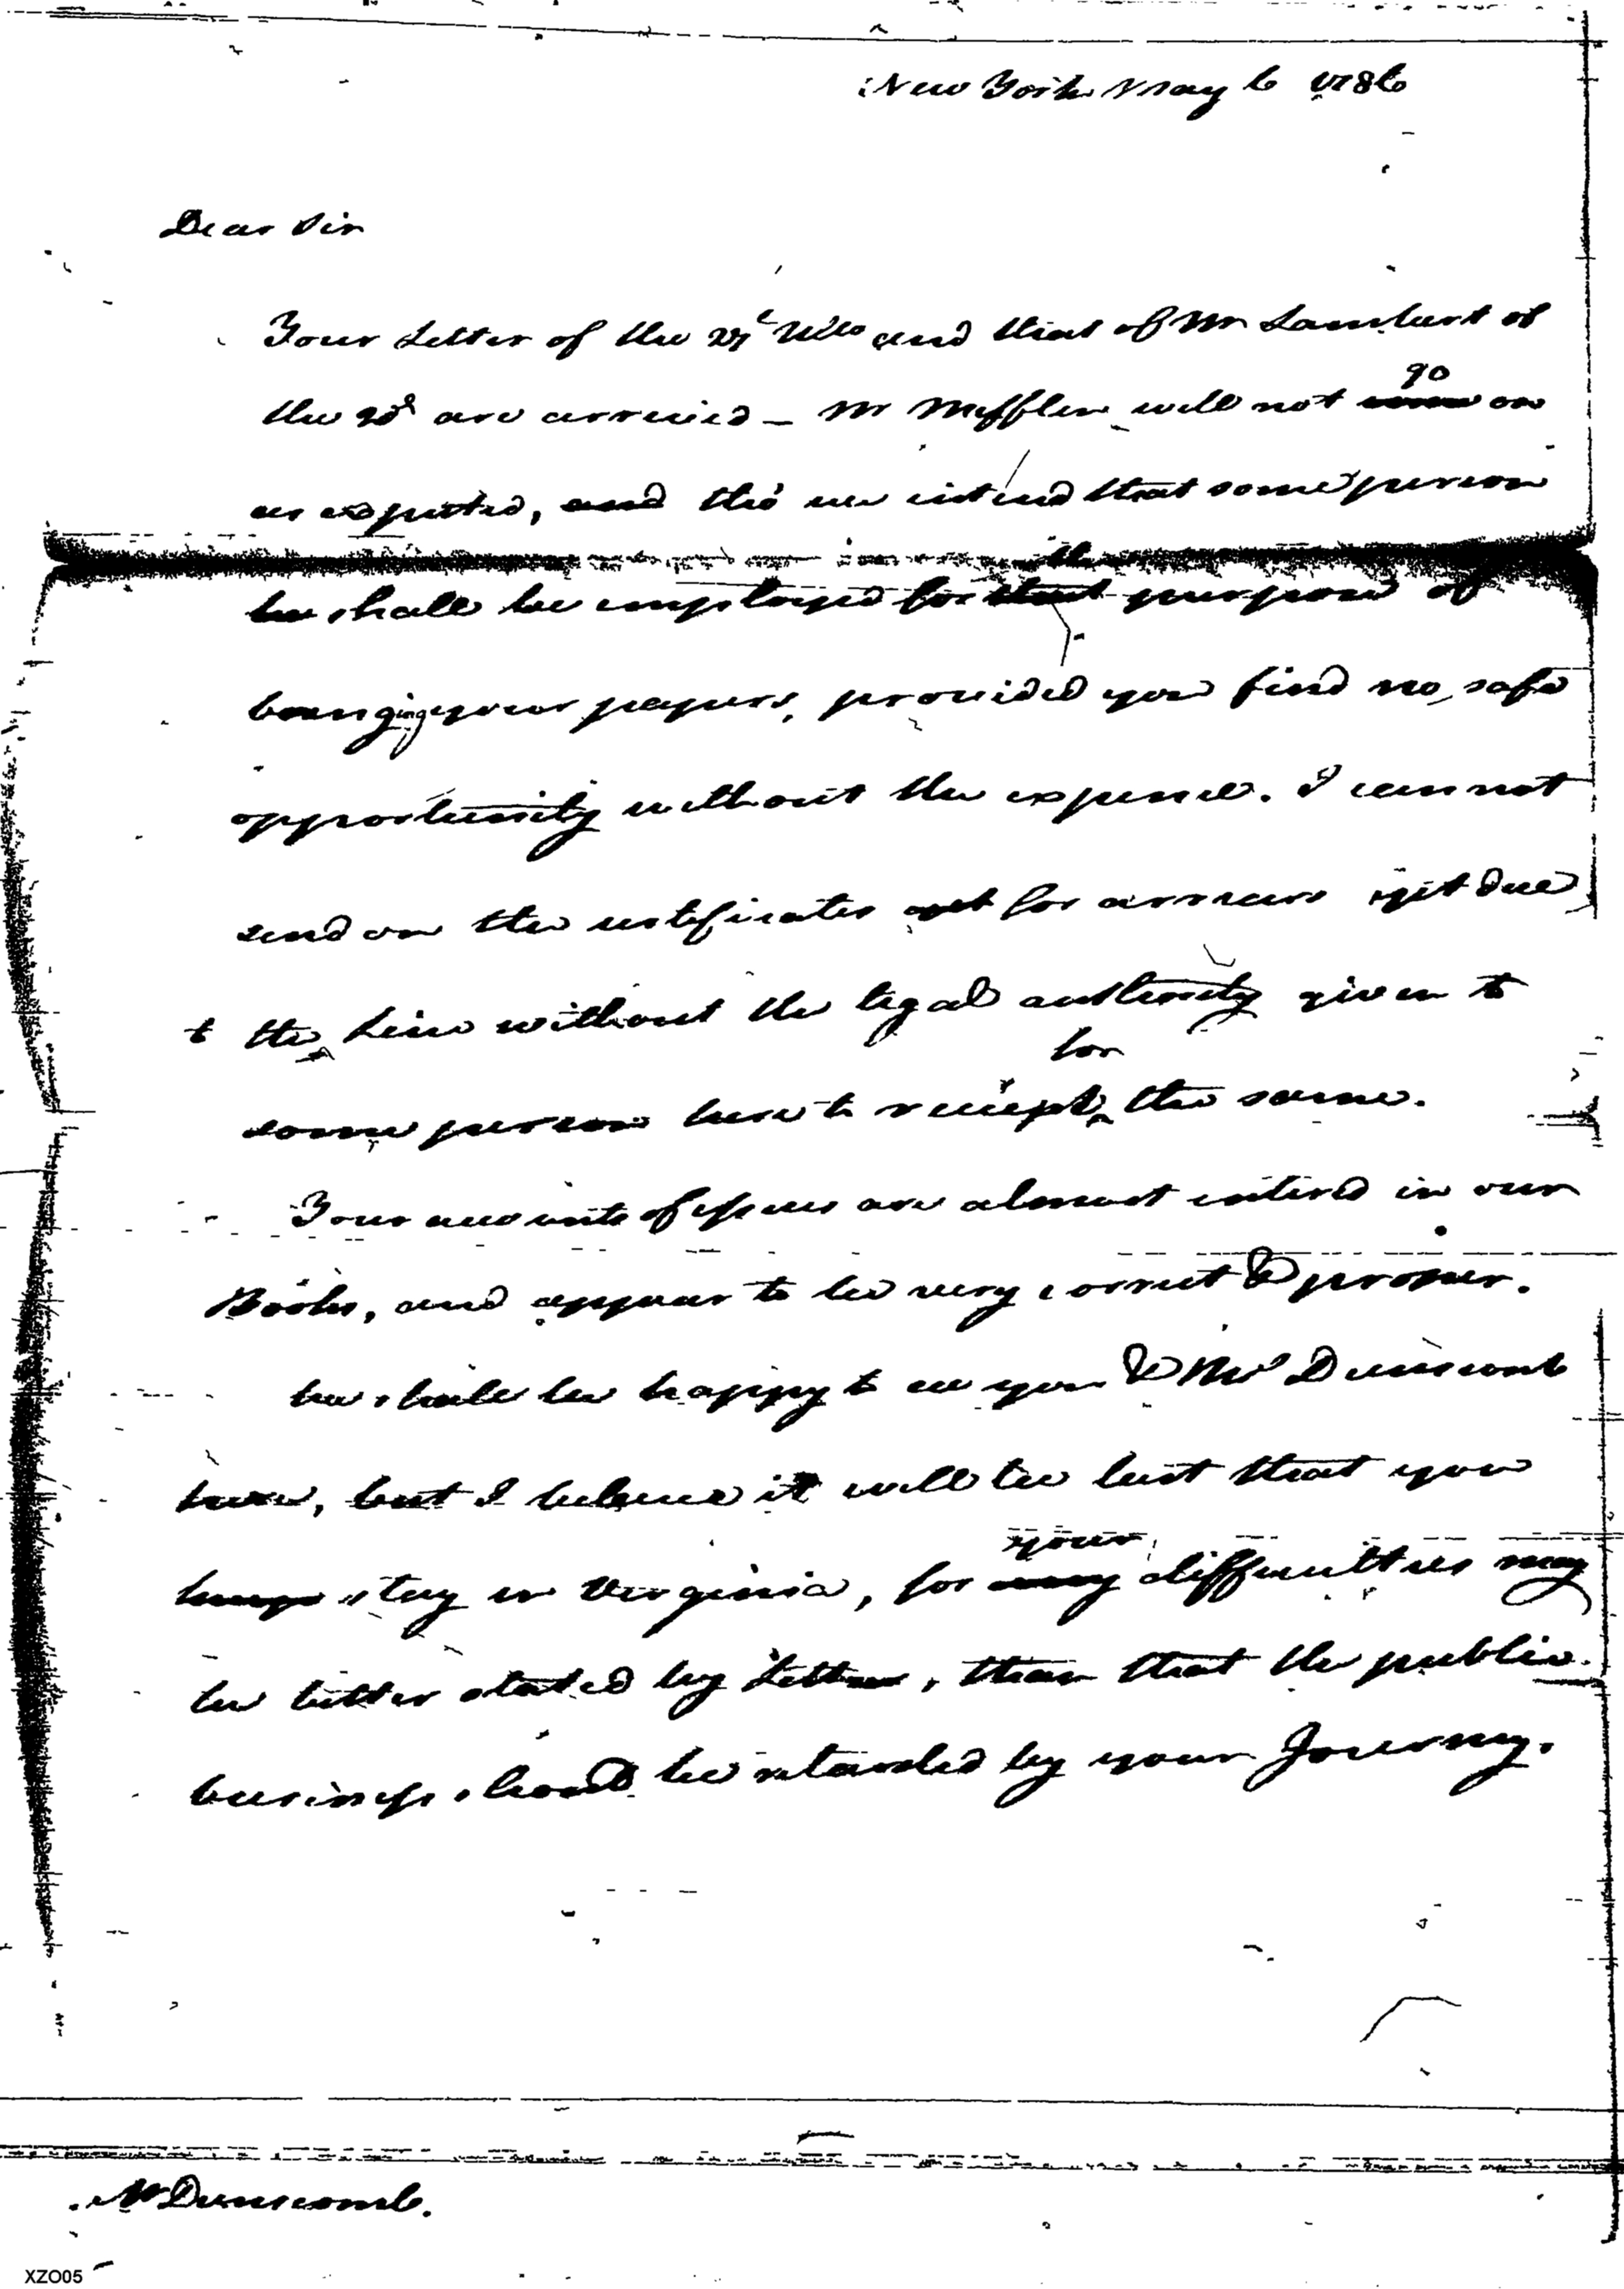 New York May 6 1786
Dear Sir
Your Letter of the 21t Ulto and that of Mr Lambert of
the 22d are arrived — Mr Mifflen will not go on
as expected, and tho' we intend that some person
shall be employed for the purpose of
bringing your papers, provided you find no safe
opportunity without the expence. I cannot
send on the certificates for arrears yet due
to the Line without the legal authority given to
some person here to reciept for the same.
Your accounts of issues are almost entered in our
Books, and appear to be very correct & proper.
We shall be happy to see you & Mrs Dunscomb
here, but I beleive it will be best that you
stay in Virginia, for your difficulties may
be better stated by Letter, than that the public
business should be retarded by your Journey.
Mr Dunscomb.
XZO05